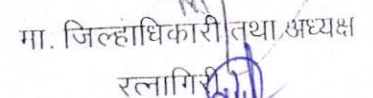 मा. जिल्हाधिकारी तथा अध्यक्ष
रत्नागिरी